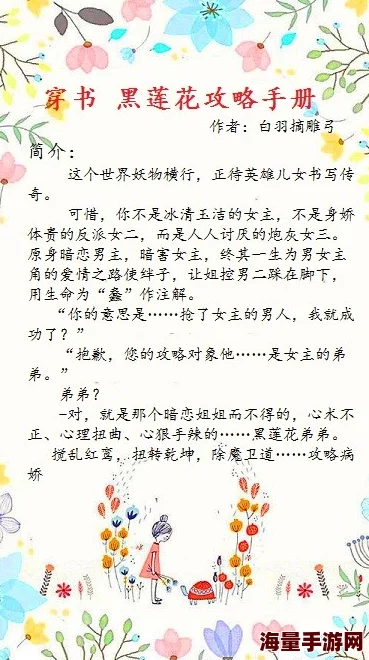 穿书 黑莲花攻略手册
作者：白羽摘雕弓
简介：
这个世界妖物横行，正待英雄儿女书写传
奇。
可惜，你不是冰清玉洁的女主，不是身娇
体贵的反派女二，而是人人讨厌的炮灰女三。
原身暗恋男主，暗害女主，终其一生为男女主
角的爱情之路使绊子，让姐控男二踩在脚下，
用生命为“蠢”作注解。
“你的意思是……抢了女主的男人，我就成
功了？”
“抱歉，您的攻略对象他……是女主的弟
弟。”
弟弟？
—对，就是那个暗恋姐姐而不得的，心术不
正、心理扭曲、心狠手辣的……黑莲花弟弟。
搅乱红鸾，扭转乾坤，除魔卫道……攻略病
娇
海量手游网